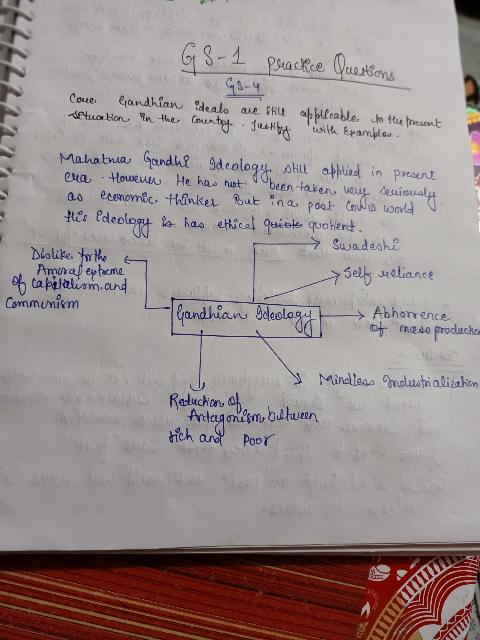 GS-1 Practice Questions
GS-4
Core Gandhian ideals are still applicable to the present
situation in the country. Justify with Examples.
Mahatma Gandhi Ideology still applied in present
era. However He has not been taken very seriously
as economic thinker But in a post covid world
His ideology is has ethical quote quotient.
Swadeshi
Dislike for the
Amoral extreme
of capitalism and
Communism
Self reliance
Gandhian Ideology
Abhorrence
of mass production
Mindless Industrialization
Reduction of
Antagonism between
rich and poor